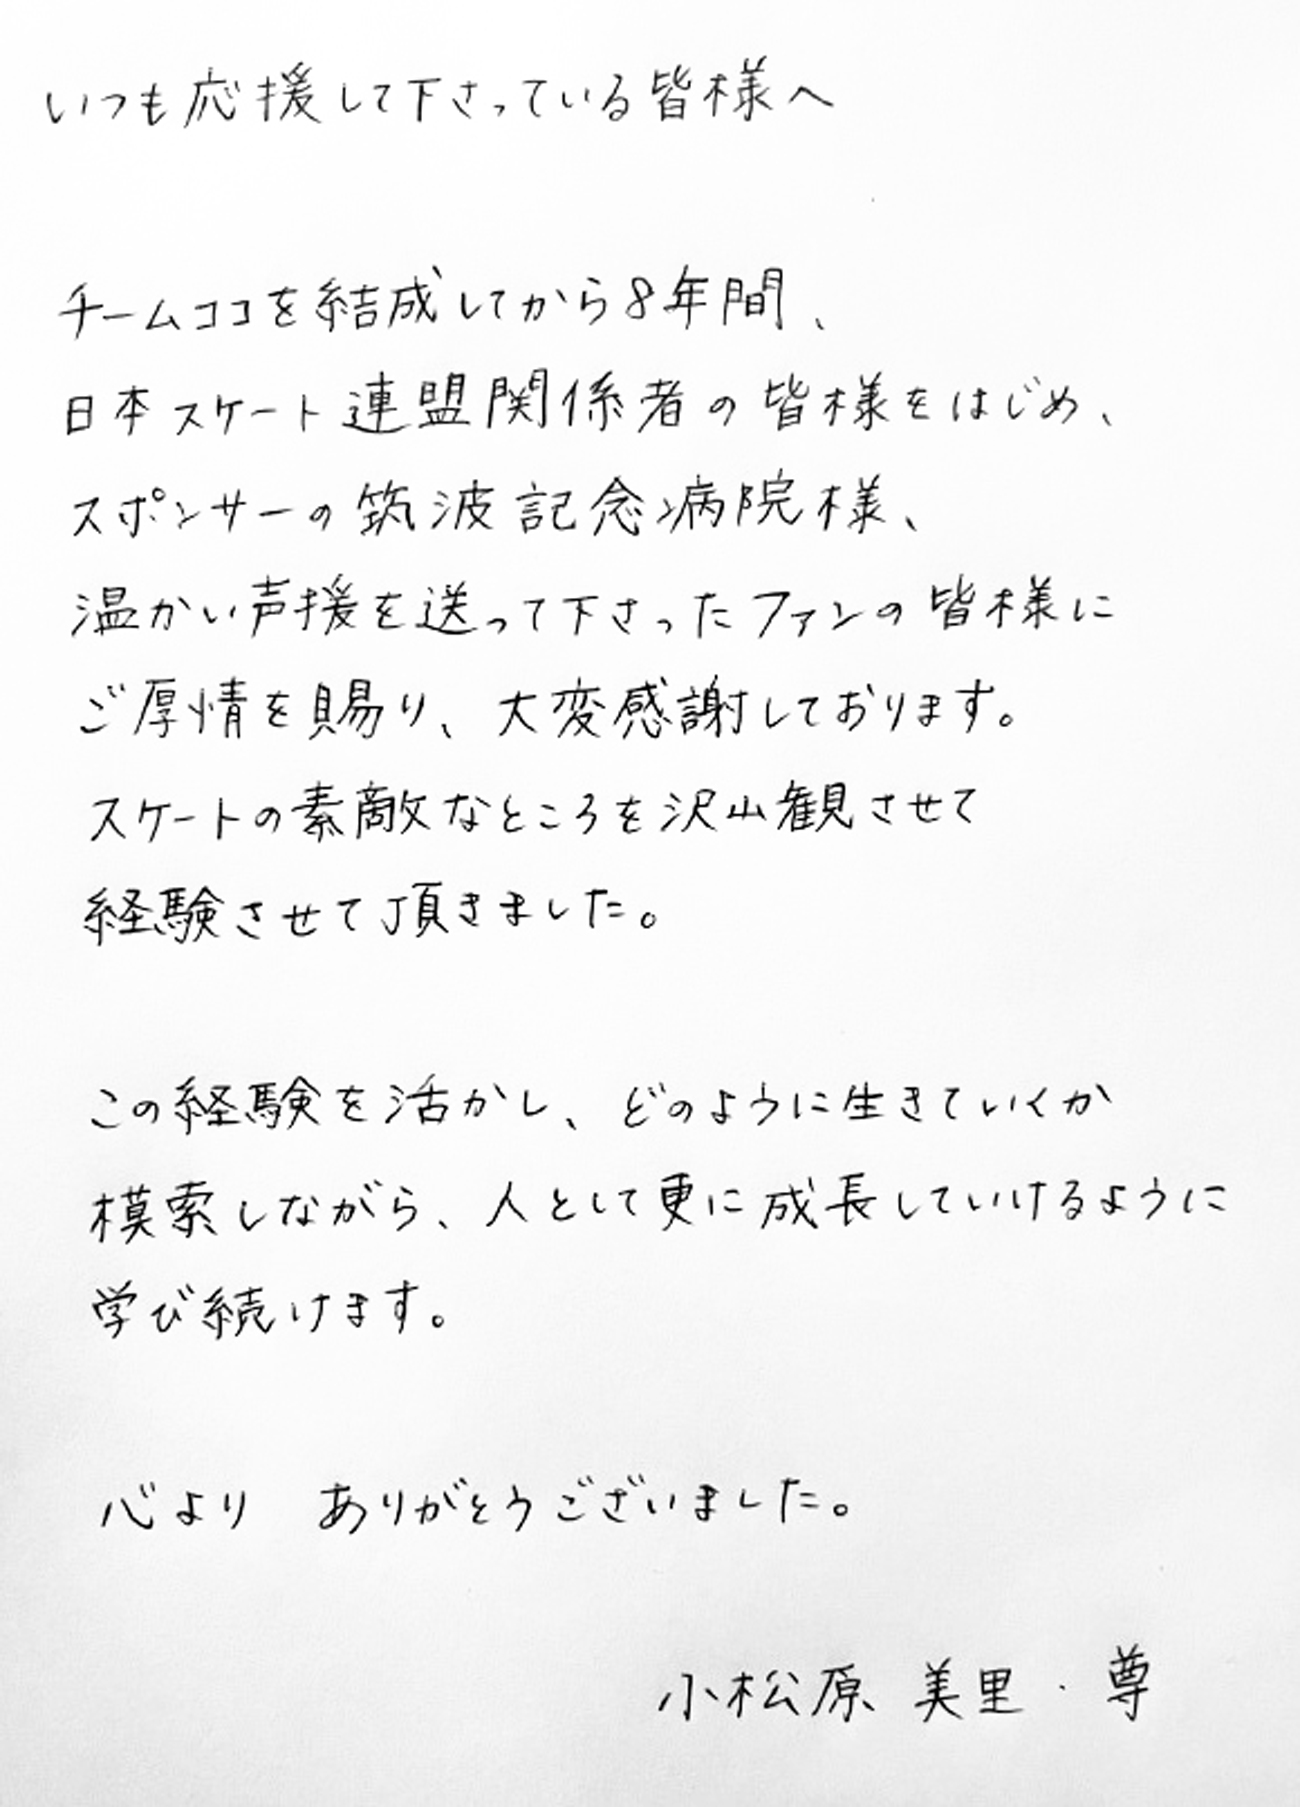 いつも応援して下さっている皆様へ
チームココを結成してから8年間、
日本スケート連盟関係者の皆様をはじめ、
スポンサーの筑波記念病院様、
温かい声援を送って下さったファンの皆様に
ご厚情を賜り、大変感謝しております。
スケートの素敵なところを沢山観させて
経験させて頂きました。
この経験を活かし、どのように生きていくか
模索しながら、人として更に成長していけるように
学び続けます。
心より　ありがとうございました。
小松原 美里・尊